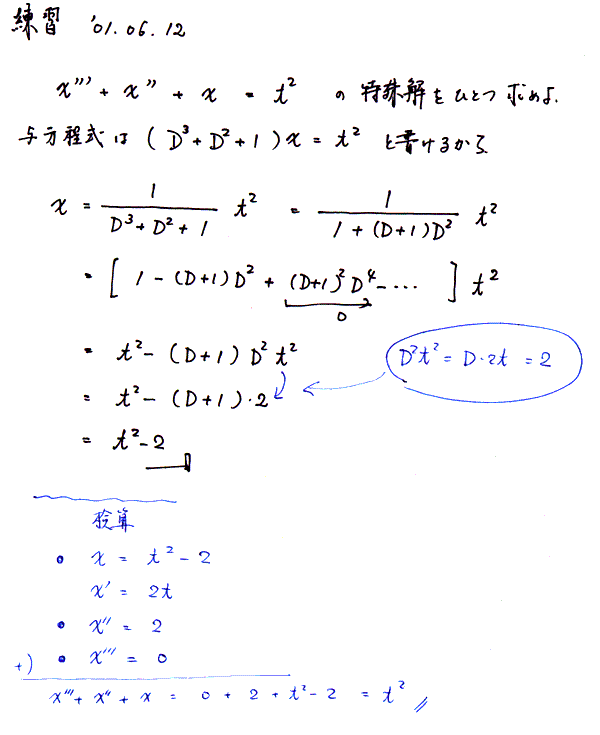 練習 '01.06.12
x''' + x'' + x = t² の 特殊解をひとつ求めよ.
与方程式は (D³+D²+1)x = t² と書けるから
x = 1/(D³+D²+1) t² = 1/(1+(D+1)D²) t²
= [ 1 - (D+1)D² + (D+1)²D⁴ - ‥‥ ] t²
0
= t² - (D+1) D² t²
D²t² = D・2t = 2
= t² - (D+1)・2
= t² - 2
検算
• x = t² - 2
x' = 2t
• x'' = 2
+) • x''' = 0
x''' + x'' + x = 0 + 2 + t² - 2 = t² //